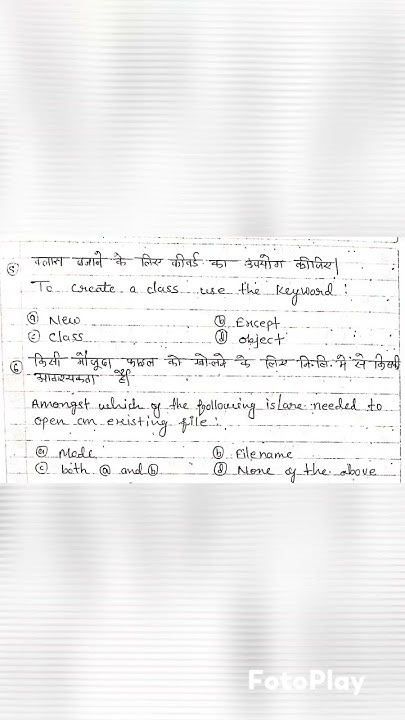 ⑤ क्लास बनाने के लिए कीवर्ड का उपयोग कीजिए|
To create a class use the keyword:
ⓐ New ⓑ Except
ⓒ class ⓓ object
⑥ किसी मौजूदा फाइल को खोलने के लिए निलि. में से किसकी
आवश्यकता है|
Amongst which of the following is/are needed to
open an existing file:
ⓐ Mode ⓑ Filename
ⓒ both ⓐ and ⓑ ⓓ None of the above
FotoPlay